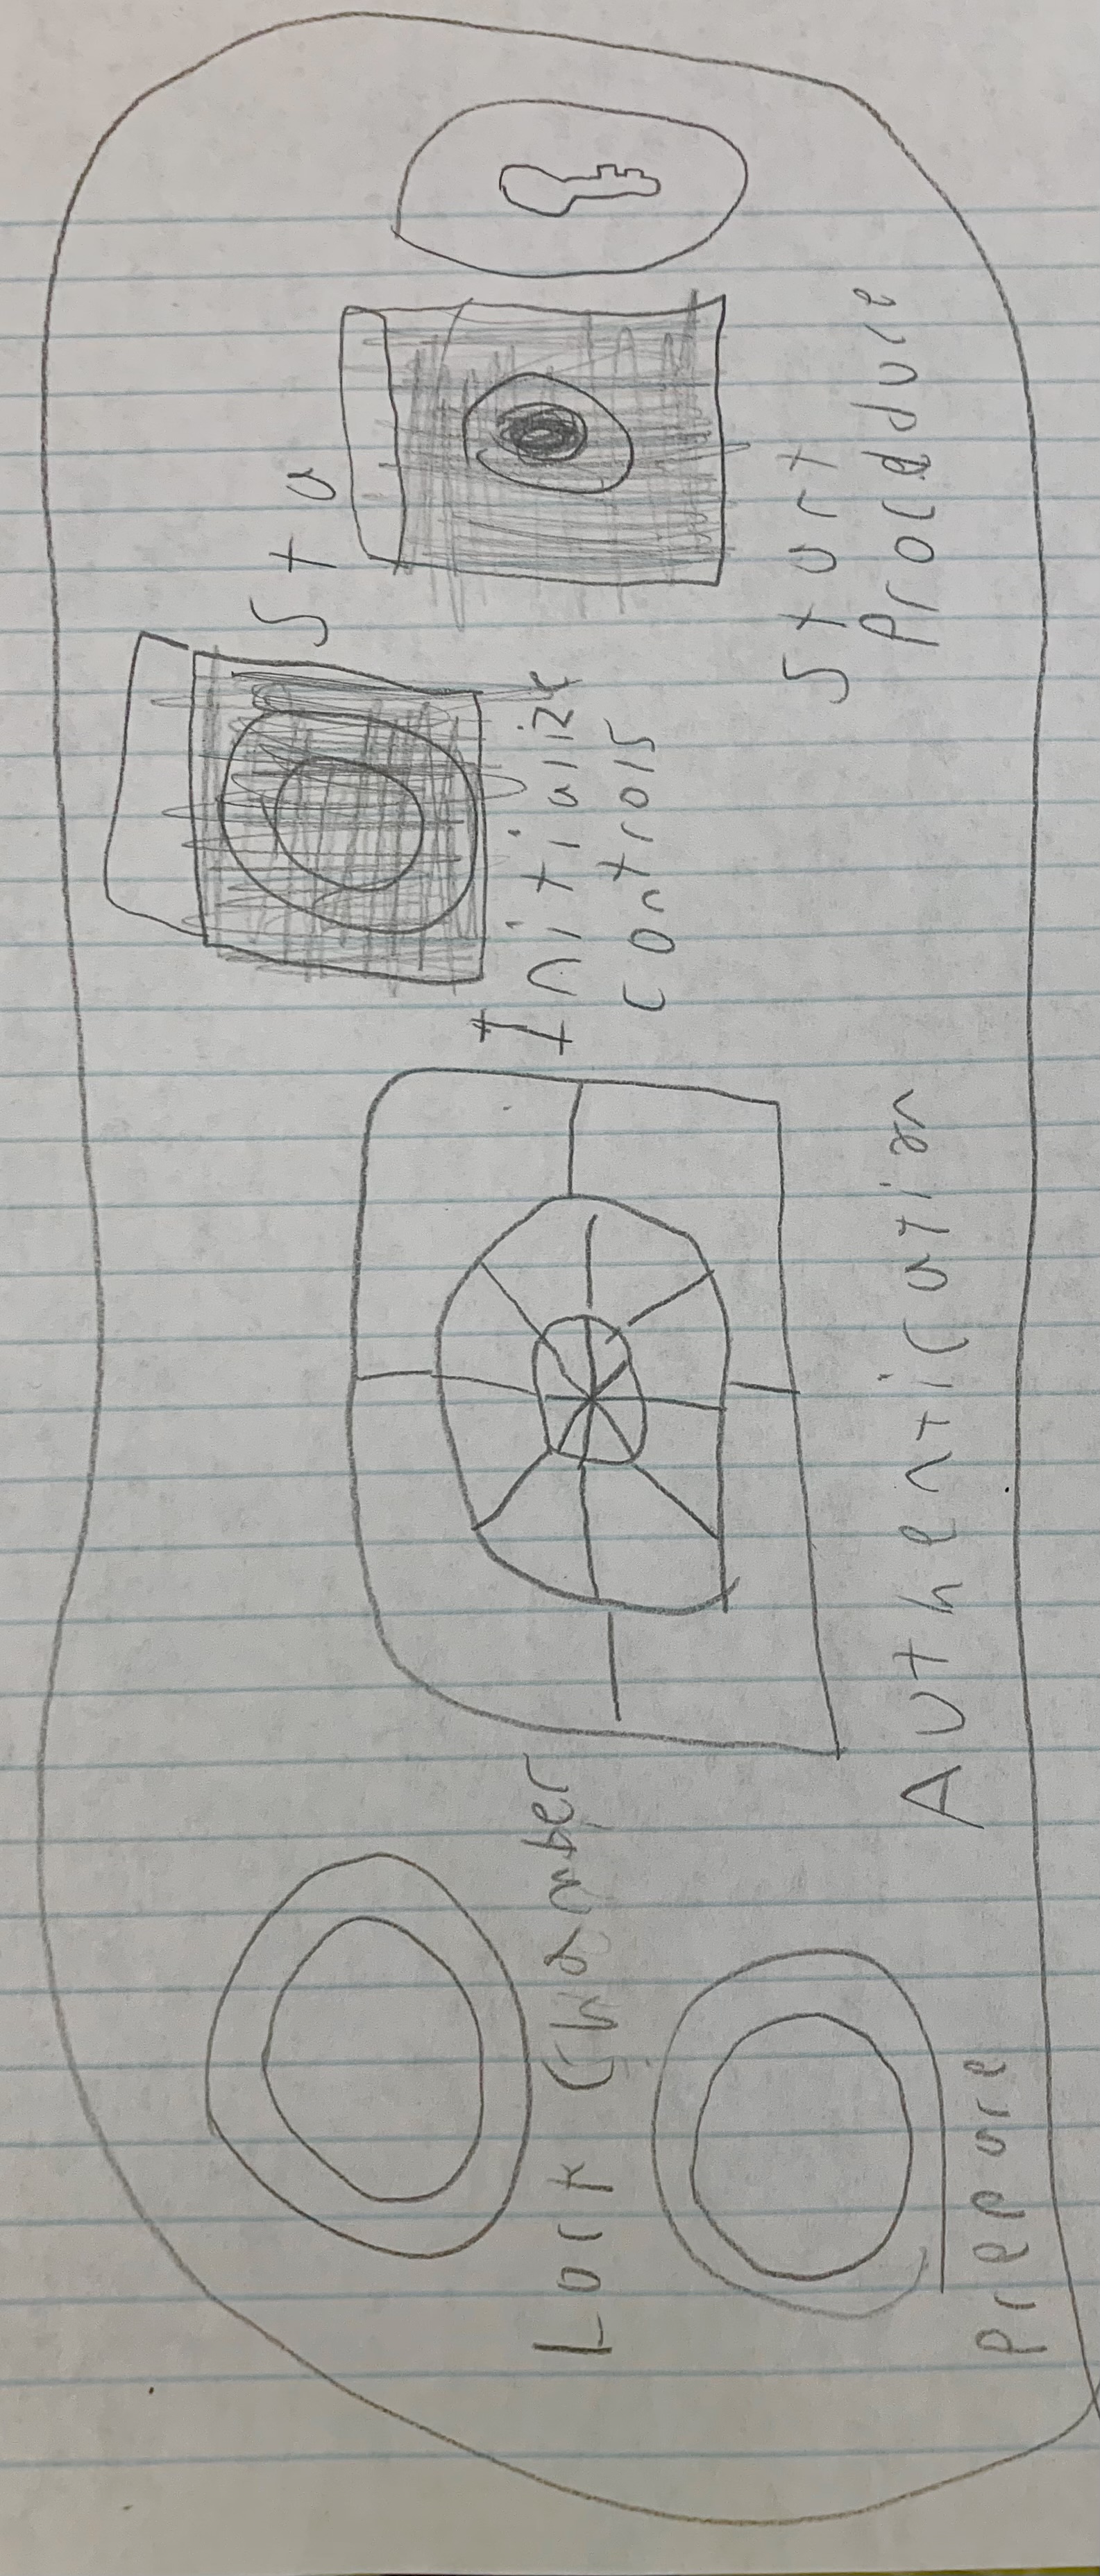 Lock Chamber
Prepare
Authentication
Initialize
controls
Sta
Start
Procedure